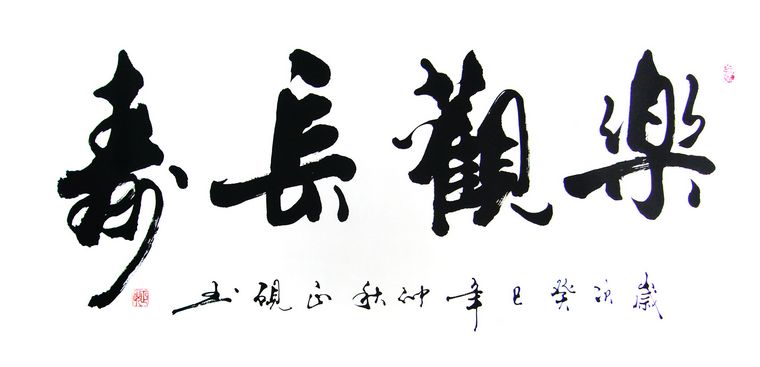 樂觀長壽
歲次癸巳年仲秋正硯书